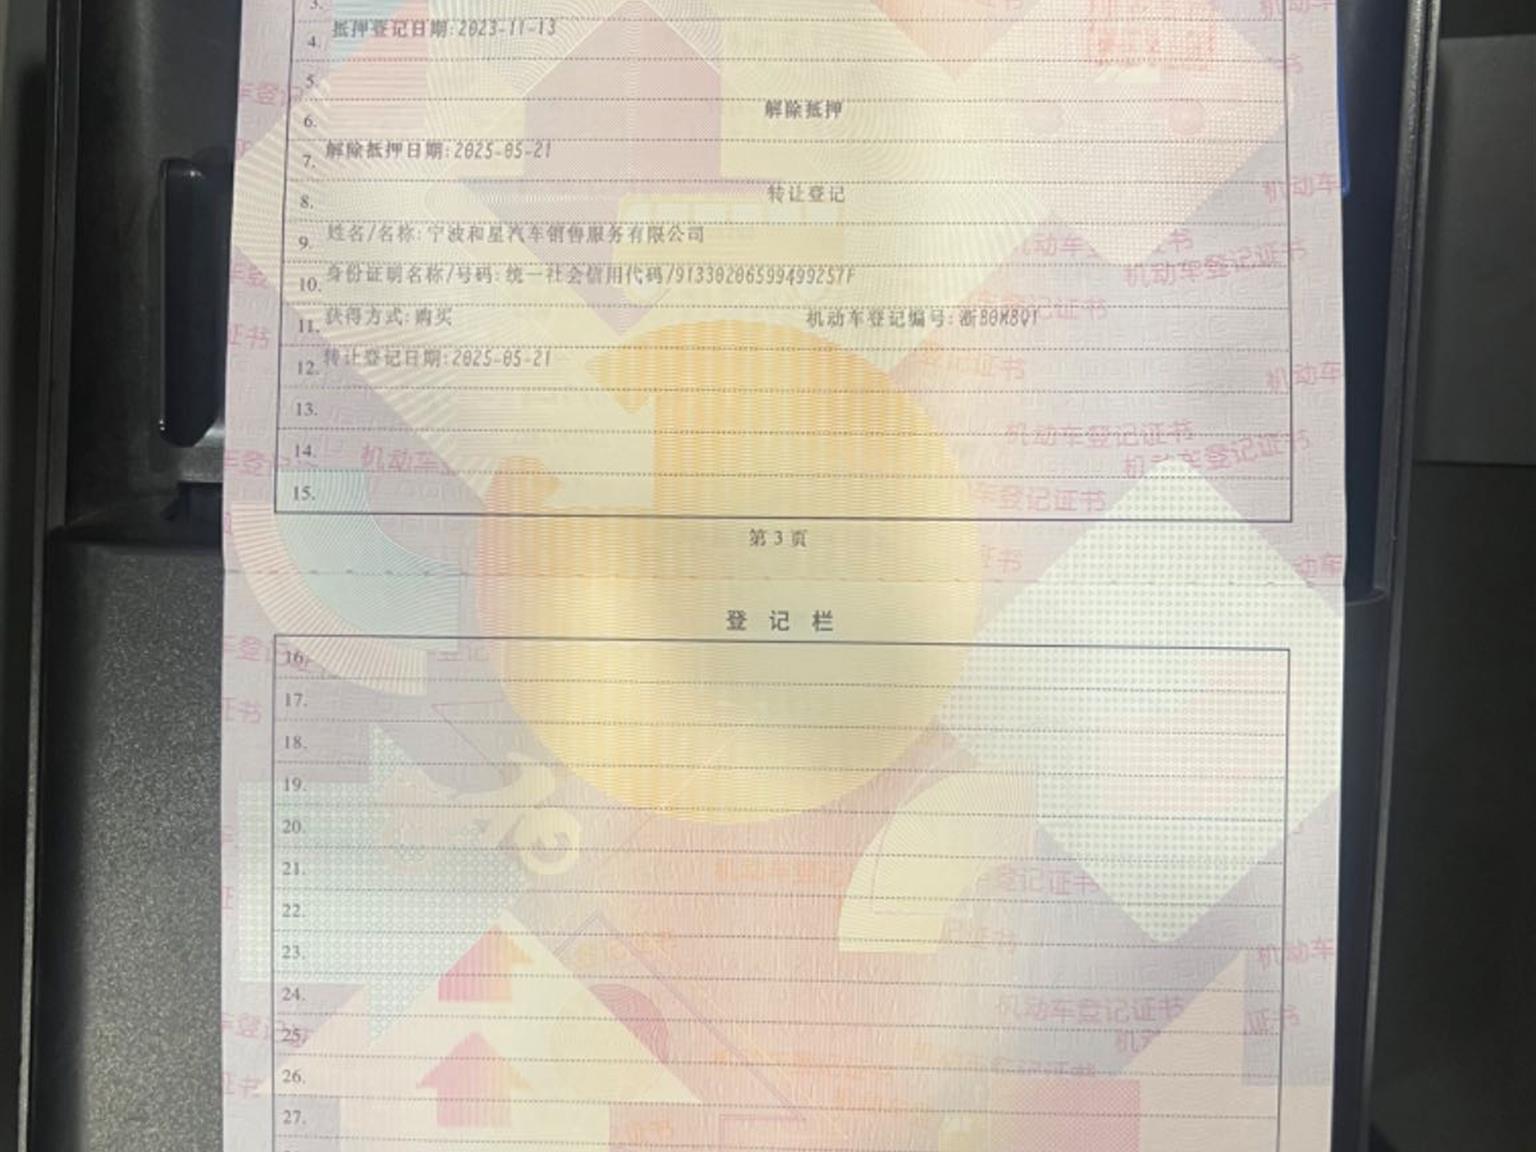 3.
抵押登记日期:2023-11-13
4.
5.
解除抵押
6.
解除抵押日期:2025-05-21
7.
转让登记
8.
姓名/名称:宁波和星汽车销售服务有限公司
9.
身份证明名称/号码:统一社会信用代码/91330206599499257F
10.
获得方式:购买 机动车登记编号:浙B0M8Q1
11.
转让登记日期:2025-05-21
12.
13.
14.
15.
第 3 页
登 记 栏
16.
17.
18.
19.
20.
21.
22.
23.
24.
25.
26.
27.